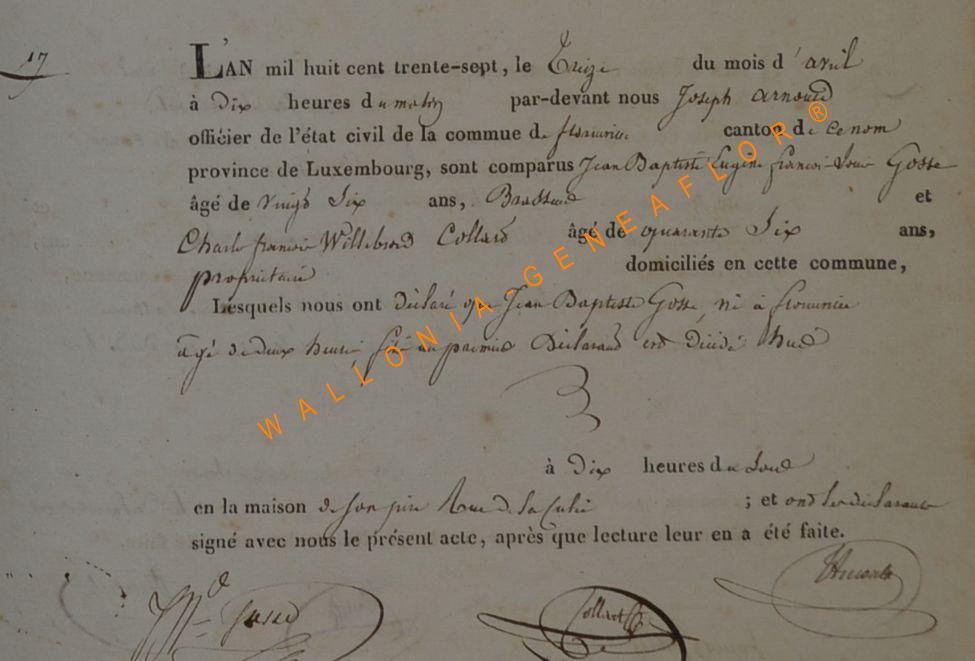 17
L'AN mil huit cent trente-sept, le Treize du mois d'avril
à Dix heures du matin par-devant nous Joseph Arnould
officier de l'état civil de la commue de florenville canton de
province de Luxembourg, sont comparus Jean Baptiste Eugène françois Louis Gosse
âgé de vingt Six ans, Brasseur et
Charles françois Willebrord Collard âgé de quarante Six ans,
propriétaire domiciliés en cette commune,
Lesquels nous ont déclaré que Jean Baptiste Gosse, né à
âgé de deux heures, fils au premier Déclarant est décédé hier
à Dix heures du Soir
en la maison de Son père Rue de la ; et ont les déclarants
signé avec nous le présent acte, après que lecture leur en a été faite.
Gosse Collart Arnould
WALLONIA-GENEAFLOR®